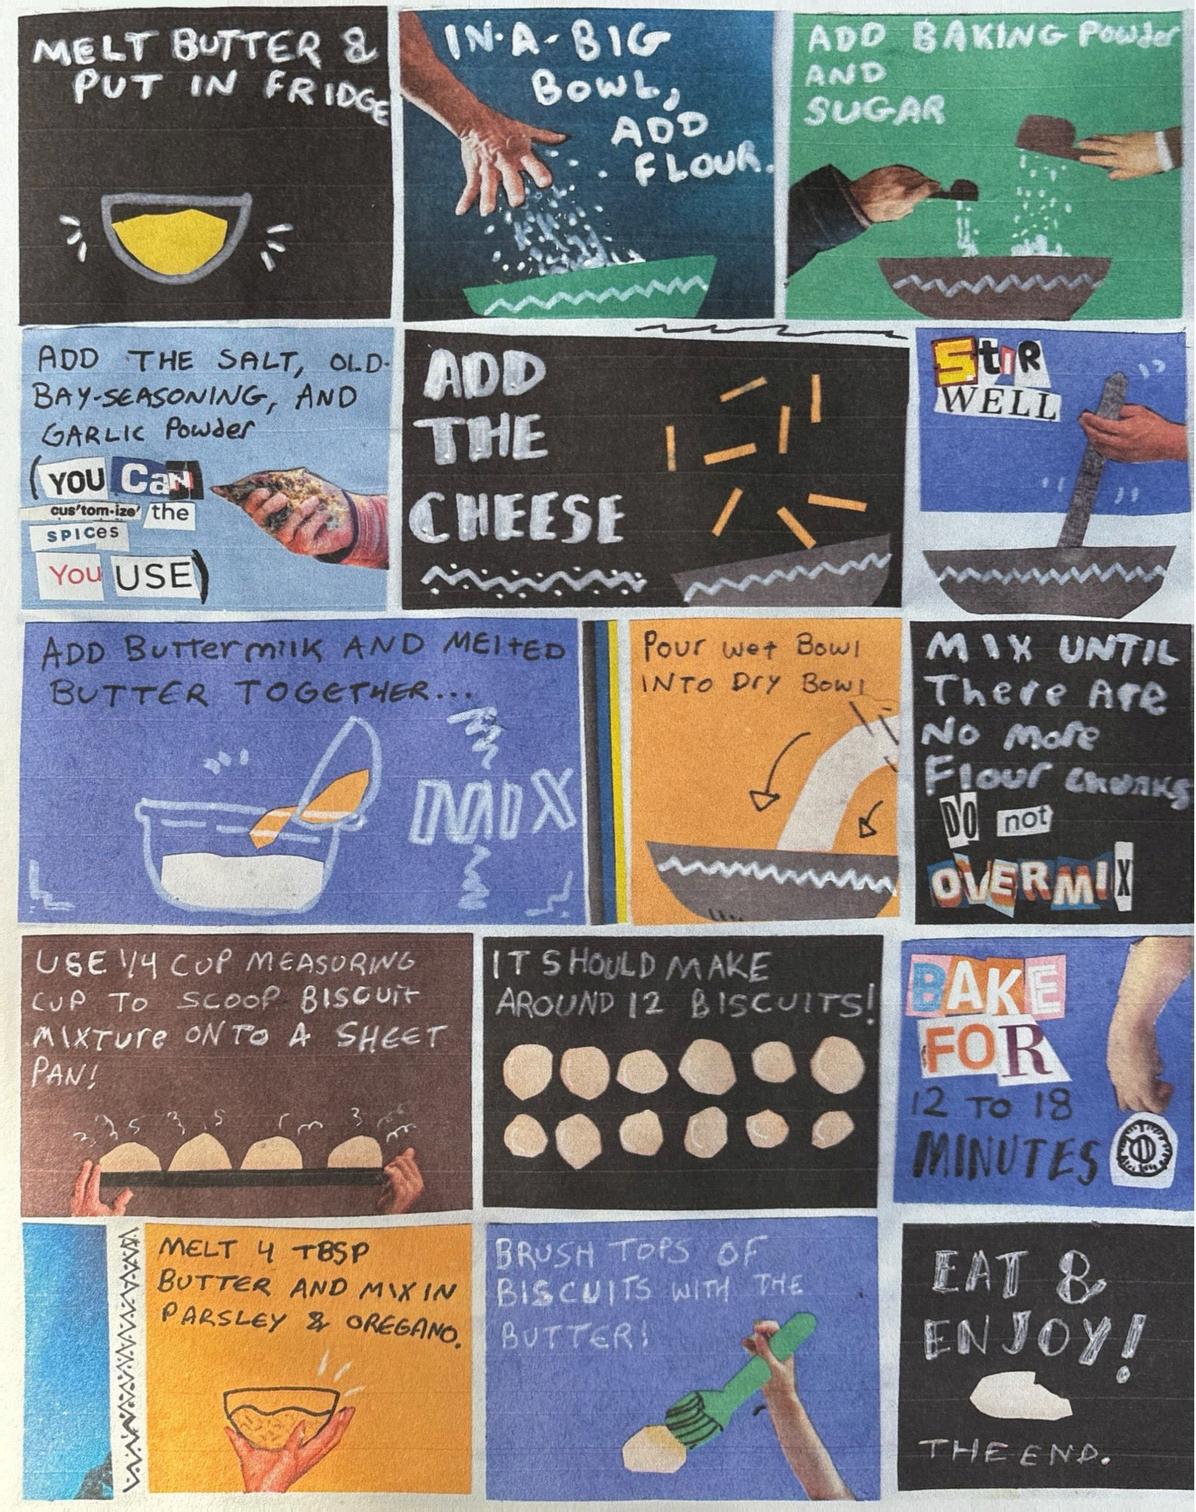 MELT BUTTER &
PUT IN FRIDGE
IN-A-BIG
BOWL,
ADD
FLOUR.
ADD BAKING Powder
AND
SUGAR
ADD THE SALT, OLD-
BAY-SEASONING, AND
GARLIC Powder
(YOU CaN
cus'tom·ize' the
SPICES
You USE)
ADD
THE
CHEESE
StiR
WELL
ADD Buttermilk AND MELTED
BUTTER TOGETHER...
MIX
Pour wet Bowl
INTO Dry Bowl
MIX UNTIL
There Are
No More
Flour chunks
DO not
OVERMIX
USE 1/4 CUP MEASURING
CUP TO SCOOP BISCUIT
MIXTURE ONTO A SHEET
PAN!
IT SHOULD MAKE
AROUND 12 BISCUITS!
BAKE
FOR
12 TO 18
MINUTES
MELT 4 TBSP
BUTTER AND MIX IN
PARSLEY & OREGANO.
BRUSH TOPS OF
BISCUITS WITH THE
BUTTER!
EAT &
ENJOY!
THE END.